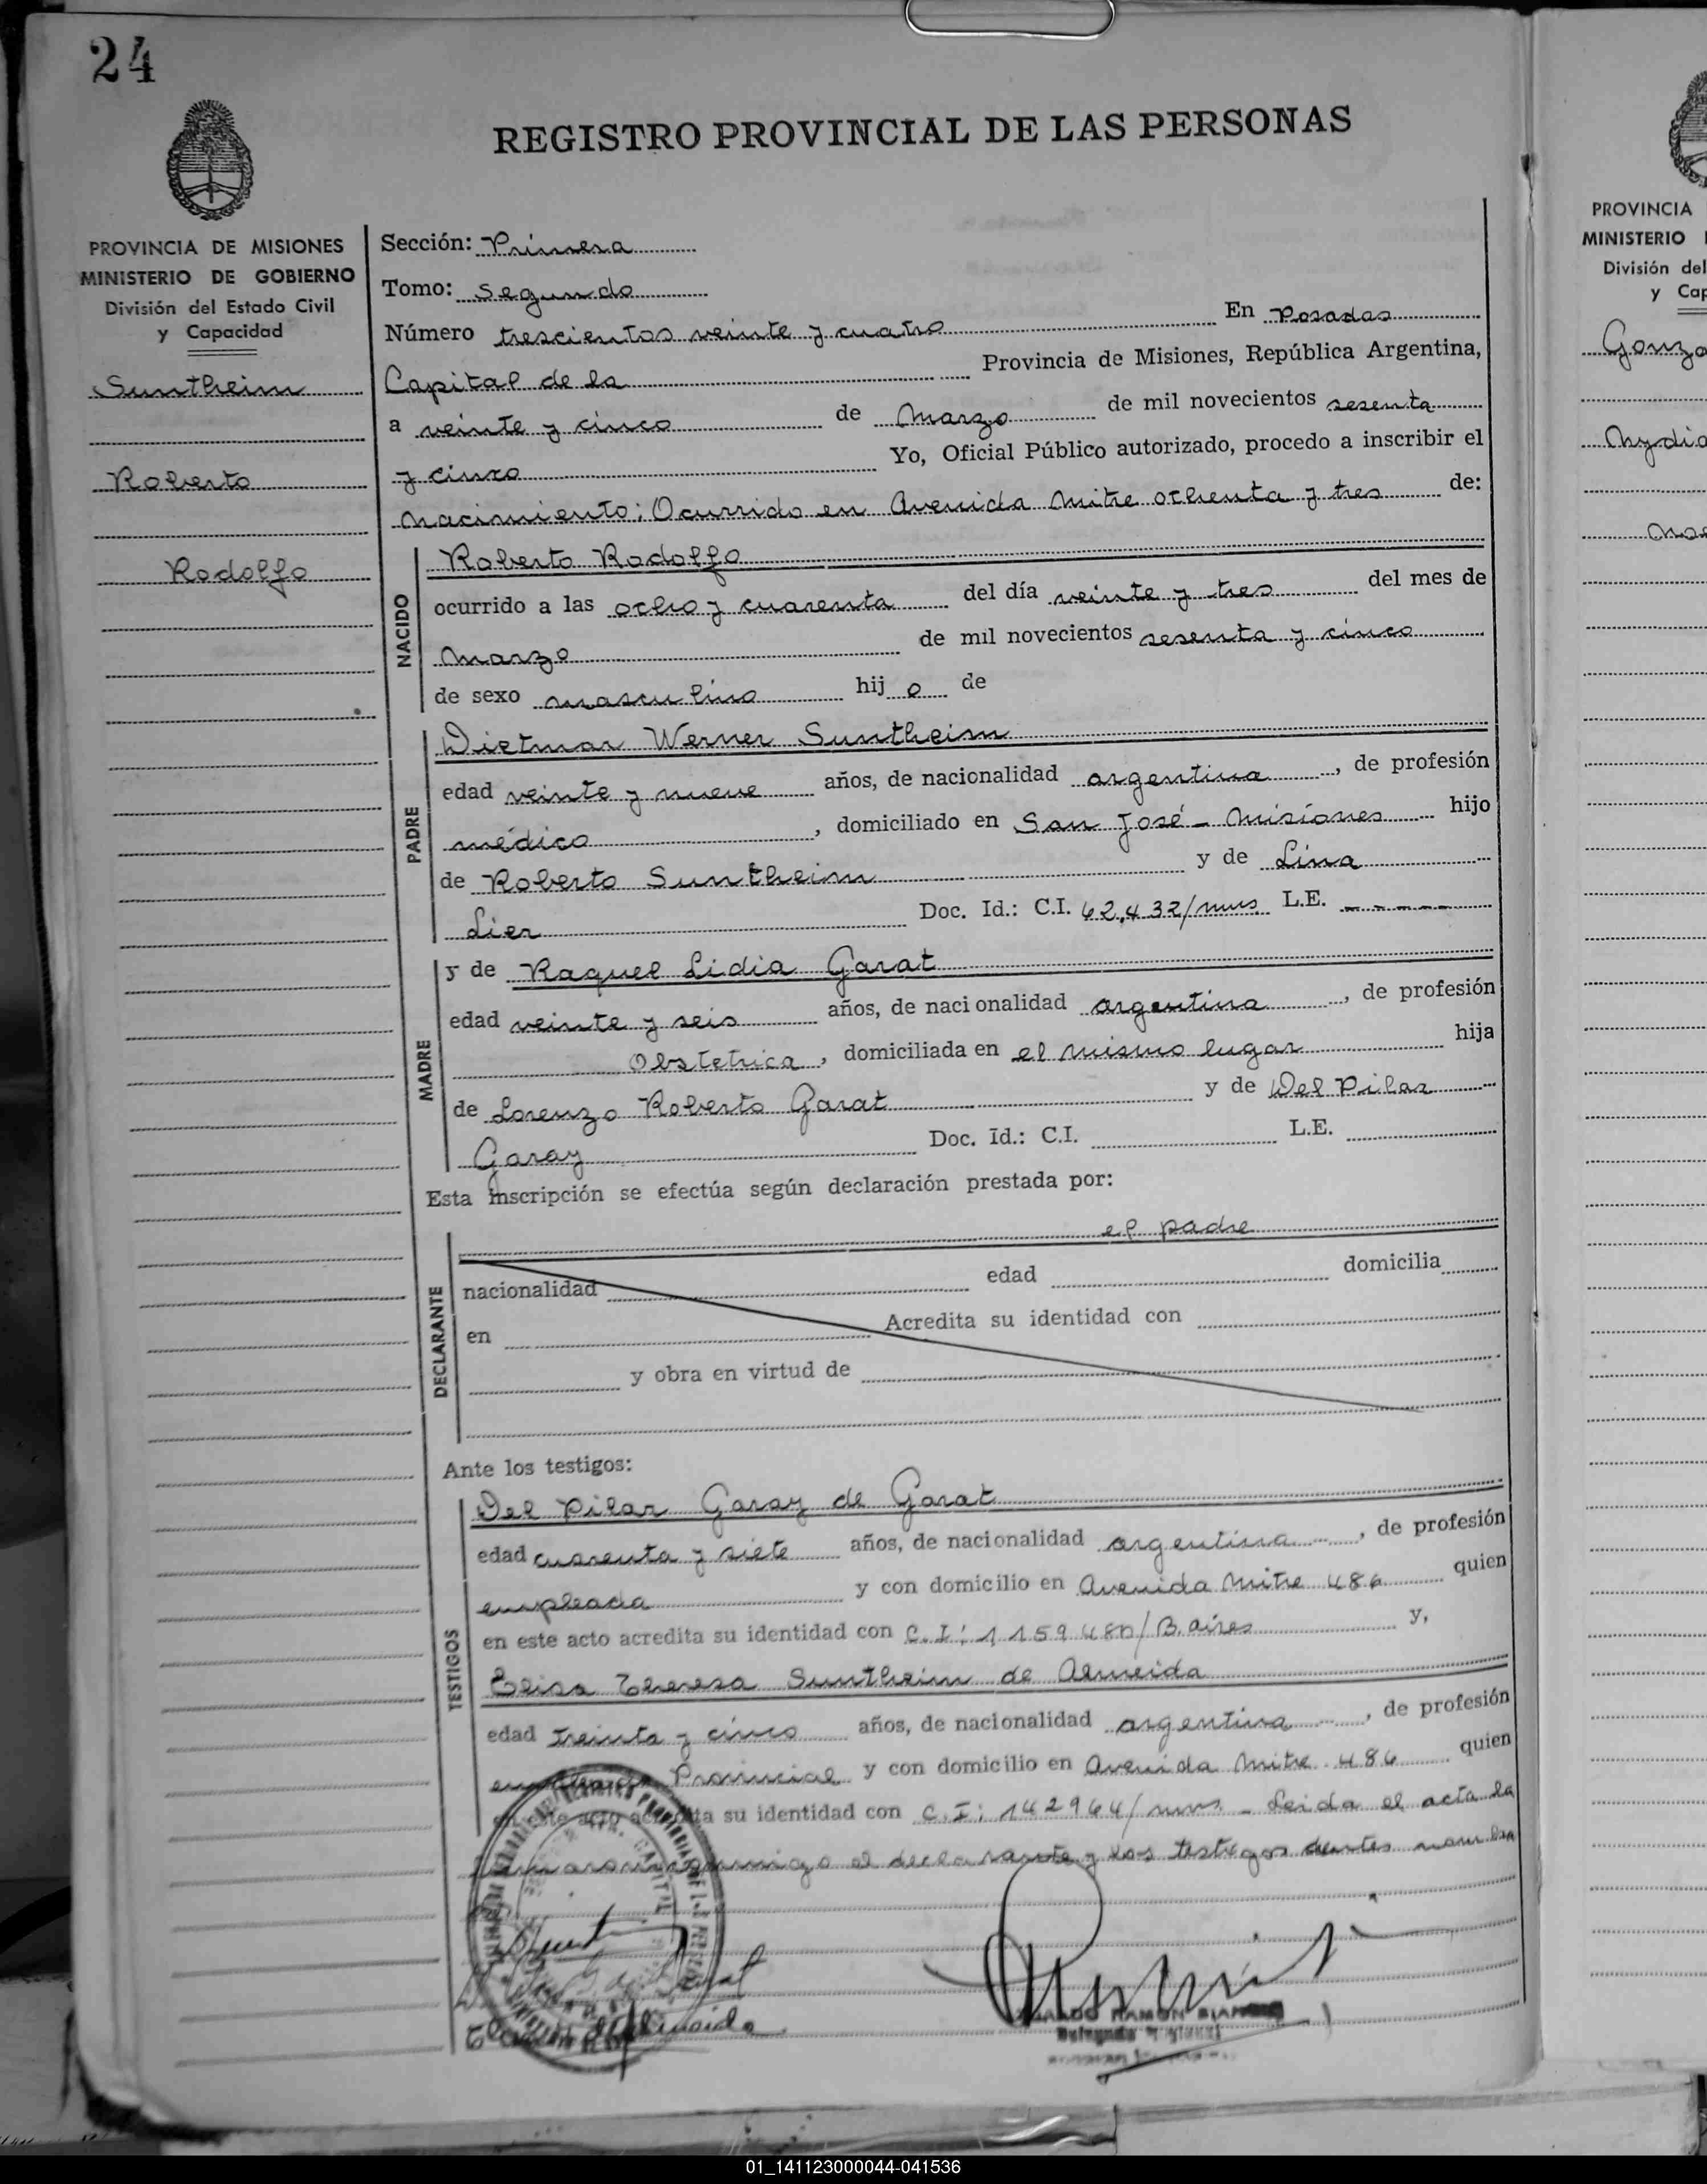 24
REGISTRO PROVINCIAL DE LAS PERSONAS
PROVINCIA DE MISIONES
MINISTERIO DE GOBIERNO
División del Estado Civil
y Capacidad
Suntheim
Roberto
Rodolfo
Sección: Primera
Tomo: Segundo
Número trescientos veinte y cuatro En Posadas
Capital de la Provincia de Misiones, República Argentina,
a veinte y cinco de Marzo de mil novecientos sesenta
y cinco Yo, Oficial Público autorizado, procedo a inscribir el
nacimiento; Ocurrido en Avenida Mitre ochenta y tres de:
NACIDO
Roberto Rodolfo
ocurrido a las ocho y cuarenta del día veinte y tres del mes de
Marzo de mil novecientos sesenta y cinco
de sexo masculino hijo de
PADRE
Dietmar Werner Suntheim
edad veinte y nueve años, de nacionalidad argentina, de profesión
médico, domiciliado en San José - Misiones hijo
de Roberto Suntheim y de Lina
Lier Doc. Id.: C.I. 62.432/mnes L.E. - - - - -
MADRE
y de Raquel Lidia Garat
edad veinte y seis años, de nacionalidad argentina, de profesión
Obstetrica, domiciliada en el mismo lugar hija
de Lorenzo Roberto Garat y de Del Pilar
Garay Doc. Id.: C.I. L.E.
Esta inscripción se efectúa según declaración prestada por:
DECLARANTE
el padre
nacionalidad edad domicilia
en Acredita su identidad con
y obra en virtud de
Ante los testigos:
TESTIGOS
Del Pilar Garay de Garat
edad cuarenta y siete años, de nacionalidad argentina, de profesión
empleada y con domicilio en Avenida Mitre 486 quien
en este acto acredita su identidad con C.I: 1159480/B. aires y,
Elisa Theresa Suntheim de Almeida
edad treinta y cinco años, de nacionalidad argentina, de profesión
Provincial y con domicilio en Avenida Mitre 486 quien
en este acto acredita su identidad con C.I: 142964/mnes - Leida el acta la
conmigo el declarante y los testigos
RAMON
Delegado
PROVINCIA
MINISTERIO
División del
y Cap
Gonza
Nydia
01_141123000044-041536